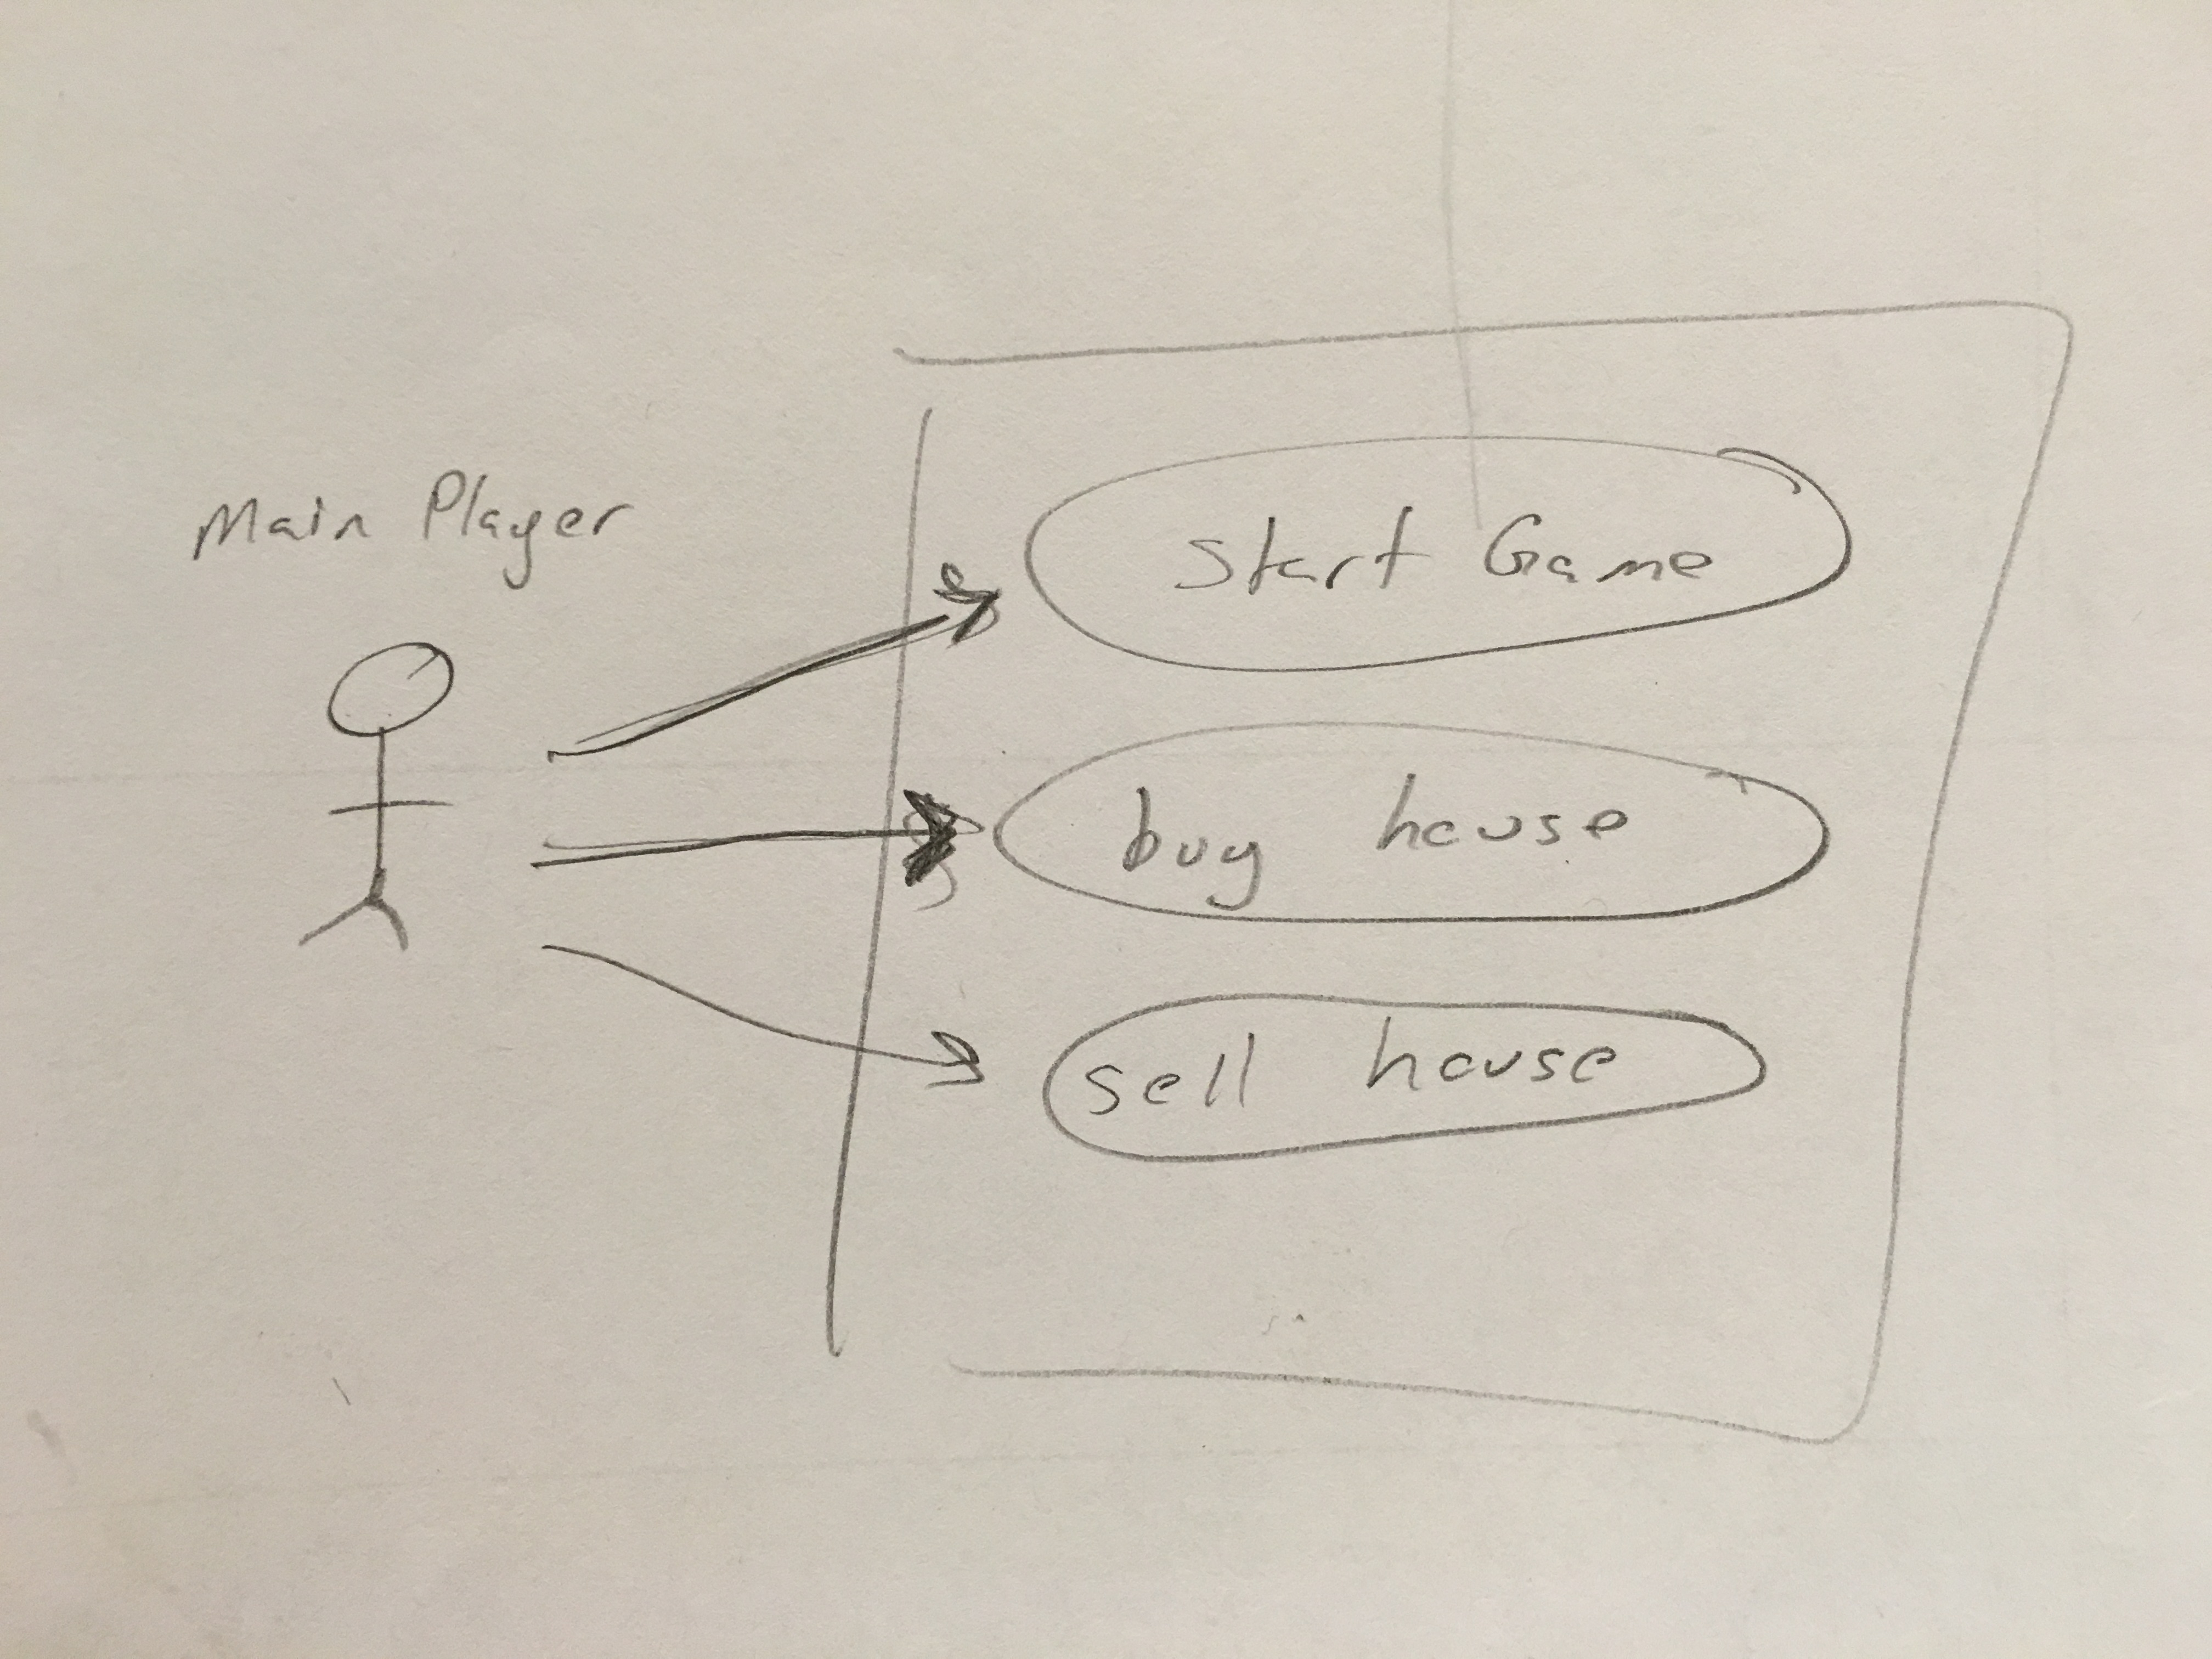 Main Player
Start Game
buy house
sell house